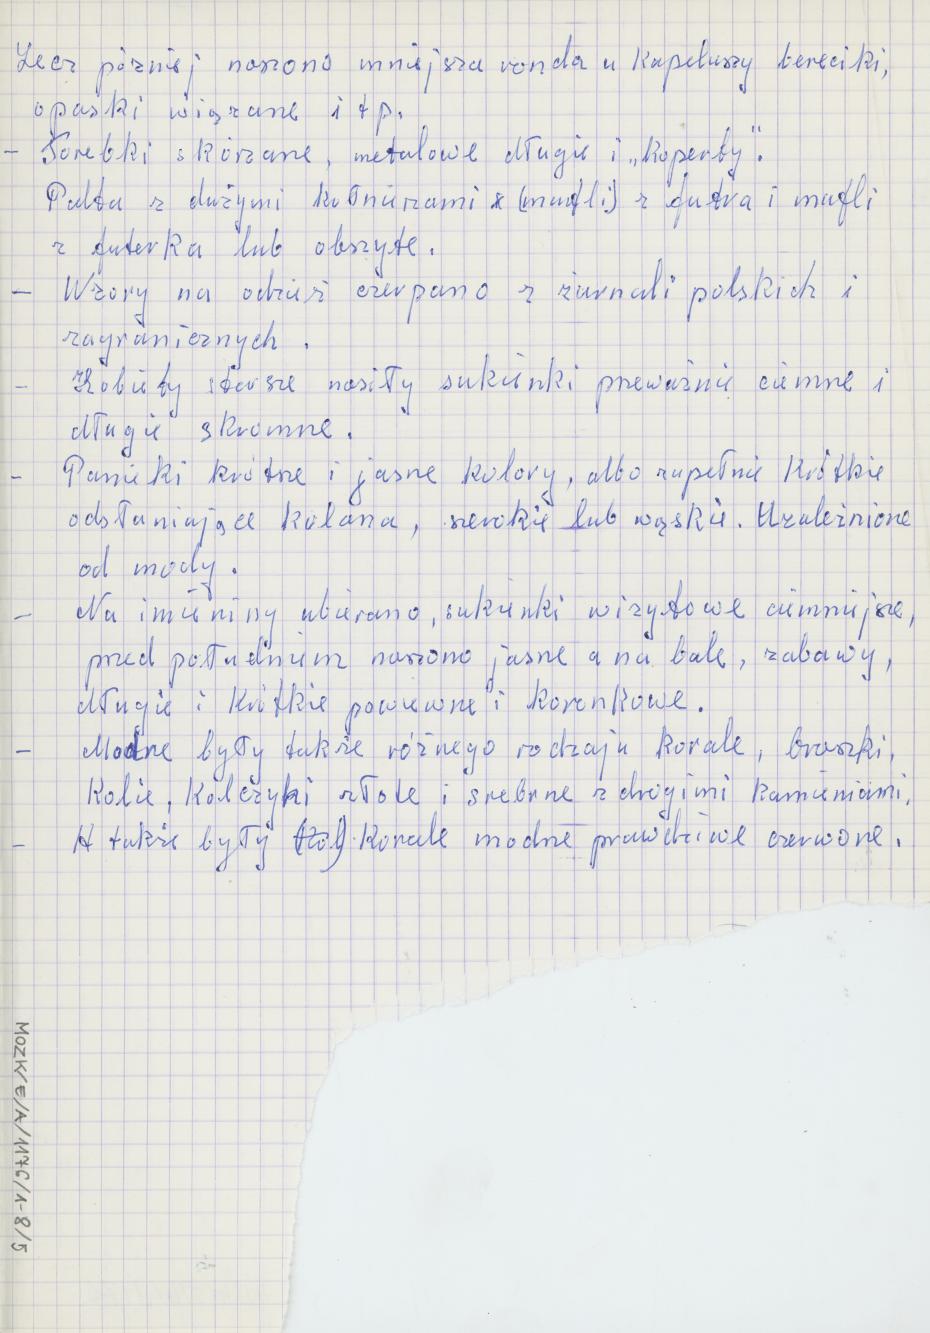 Lecz później noszono mniejsza ronda u kapeluszy bereciki,
opaski wiązane i t p.
- Torebki skórzane, metalowe długie i „koperty".
Palta z dużymi kołnierzami z (mufli) z futra i mufli
z futerka lub obszyte.
- Wzory na odzież czerpano z żurnali polskich i
zagranicznych.
- Kobiety starsze nosiły sukienki przeważnie ciemne i
długie skromne.
- Panieki krótne i jasne kolory, albo zupełnie krótkie
odsłaniające kolana, szerokie lub wąskie. Uzależnione
od mody.
- Na imieniny ubierano, sukienki wizytowe ciemniejsze,
przed południem noszono jasne a na bale, zabawy,
długie i krótkie powiewne i koronkowe.
- Modne były także różnego rodzaju korale, broszki,
kolie, kolczyki złote i srebrne z drogimi kamieniami,
- A także były (kol) korale modne prawdziwe czerwone.
MOZK/E/A/1176/1-8/5